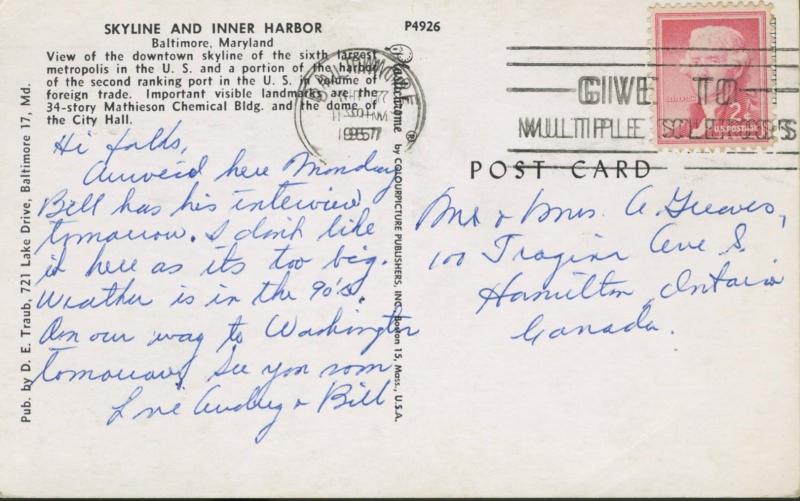 SKYLINE AND INNER HARBOR
Baltimore, Maryland
View of the downtown skyline of the sixth largest
metropolis in the U. S. and a portion of the harbor
of the second ranking port in the U. S. in volume of
foreign trade. Important visible landmarks are the
34-story Mathieson Chemical Bldg. and the dome of
the City Hall.
P4926
Hi folks,
Arrived here Monday
Bill has his interview
tomorrow. I don't like
it here as its too big.
Weather is in the 90's.
On our way to Washington
tomorrow. See you soon
Love Audrey & Bill
Pub. by D. E. Traub, 721 Lake Drive, Baltimore 17, Md.
Plastichrome ® by COLOURPICTURE PUBLISHERS, INC. Boston 15, Mass., U.S.A.
BALTIMORE
1957
GIVE TO
MULTIPLE SCLEROSIS
2¢
U.S. POSTAGE
POST CARD
Mr & Mrs. A. Greaves,
100 Tragina Ave S.
Hamilton, Ontario
Canada.